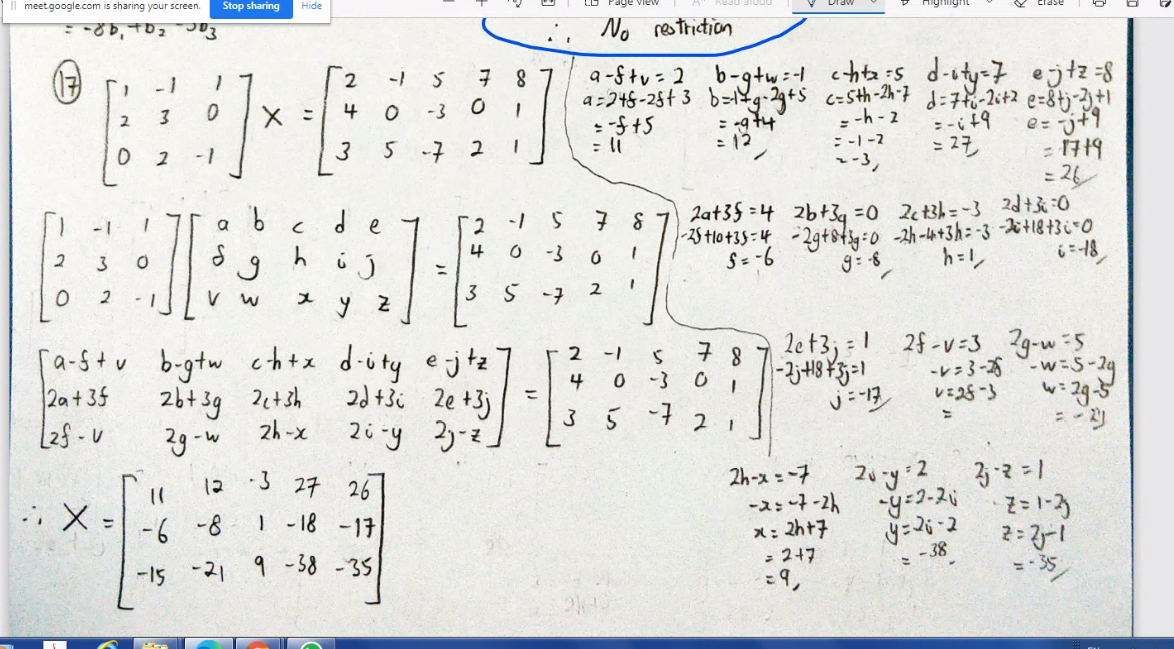 meet.google.com is sharing your screen.
Stop sharing
Hide
Page view
Read aloud
Draw
Highlight
Erase
= -8b₁ + b₂ - 3b₃
∴ No restriction
17
[1 -1 1
2 3 0
0 2 -1] X = [2 -1 5 7 8
4 0 -3 0 1
3 5 -7 2 1]
[1 -1 1
2 3 0
0 2 -1] [a b c d e
f g h i j
v w x y z] = [2 -1 5 7 8
4 0 -3 0 1
3 5 -7 2 1]
[a-f+v b-g+w c-h+x d-i+y e-j+z
2a+3f 2b+3g 2c+3h 2d+3i 2e+3j
2f-v 2g-w 2h-x 2i-y 2j-z] = [2 -1 5 7 8
4 0 -3 0 1
3 5 -7 2 1]
∴ X = [11 12 -3 27 26
-6 -8 1 -18 -17
-15 -21 9 -38 -35]
a-f+v=2
a=2+f-2f+3
=-f+5
=11
b-g+w=-1
b=-1+g-2g+5
=-g+4
=12
c-h+x=5
c=5+h-2h-7
=-h-2
=-1-2
=-3
d-i+y=7
d=7+i-2i+2
=-i+9
=27
e-j+z=8
e=8+j-2j+1
e=-j+9
=17+9
=26
2a+3f=4
-2f+10+3f=4
f=-6
2b+3g=0
-2g+8+3g=0
g=-8
2c+3h=-3
-2h-4+3h=-3
h=1
2d+3i=0
-2i+18+3i=0
i=-18
2e+3j=1
-2j+18+3j=1
j=-17
2f-v=3
-v=3-2f
v=2f-3
=
2g-w=5
-w=5-2g
w=2g-5
=-21
2h-x=-7
-x=-7-2h
x=2h+7
=2+7
=9
2i-y=2
-y=2-2i
y=2i-2
=-38
2j-z=1
-z=1-2j
z=2j-1
=-35